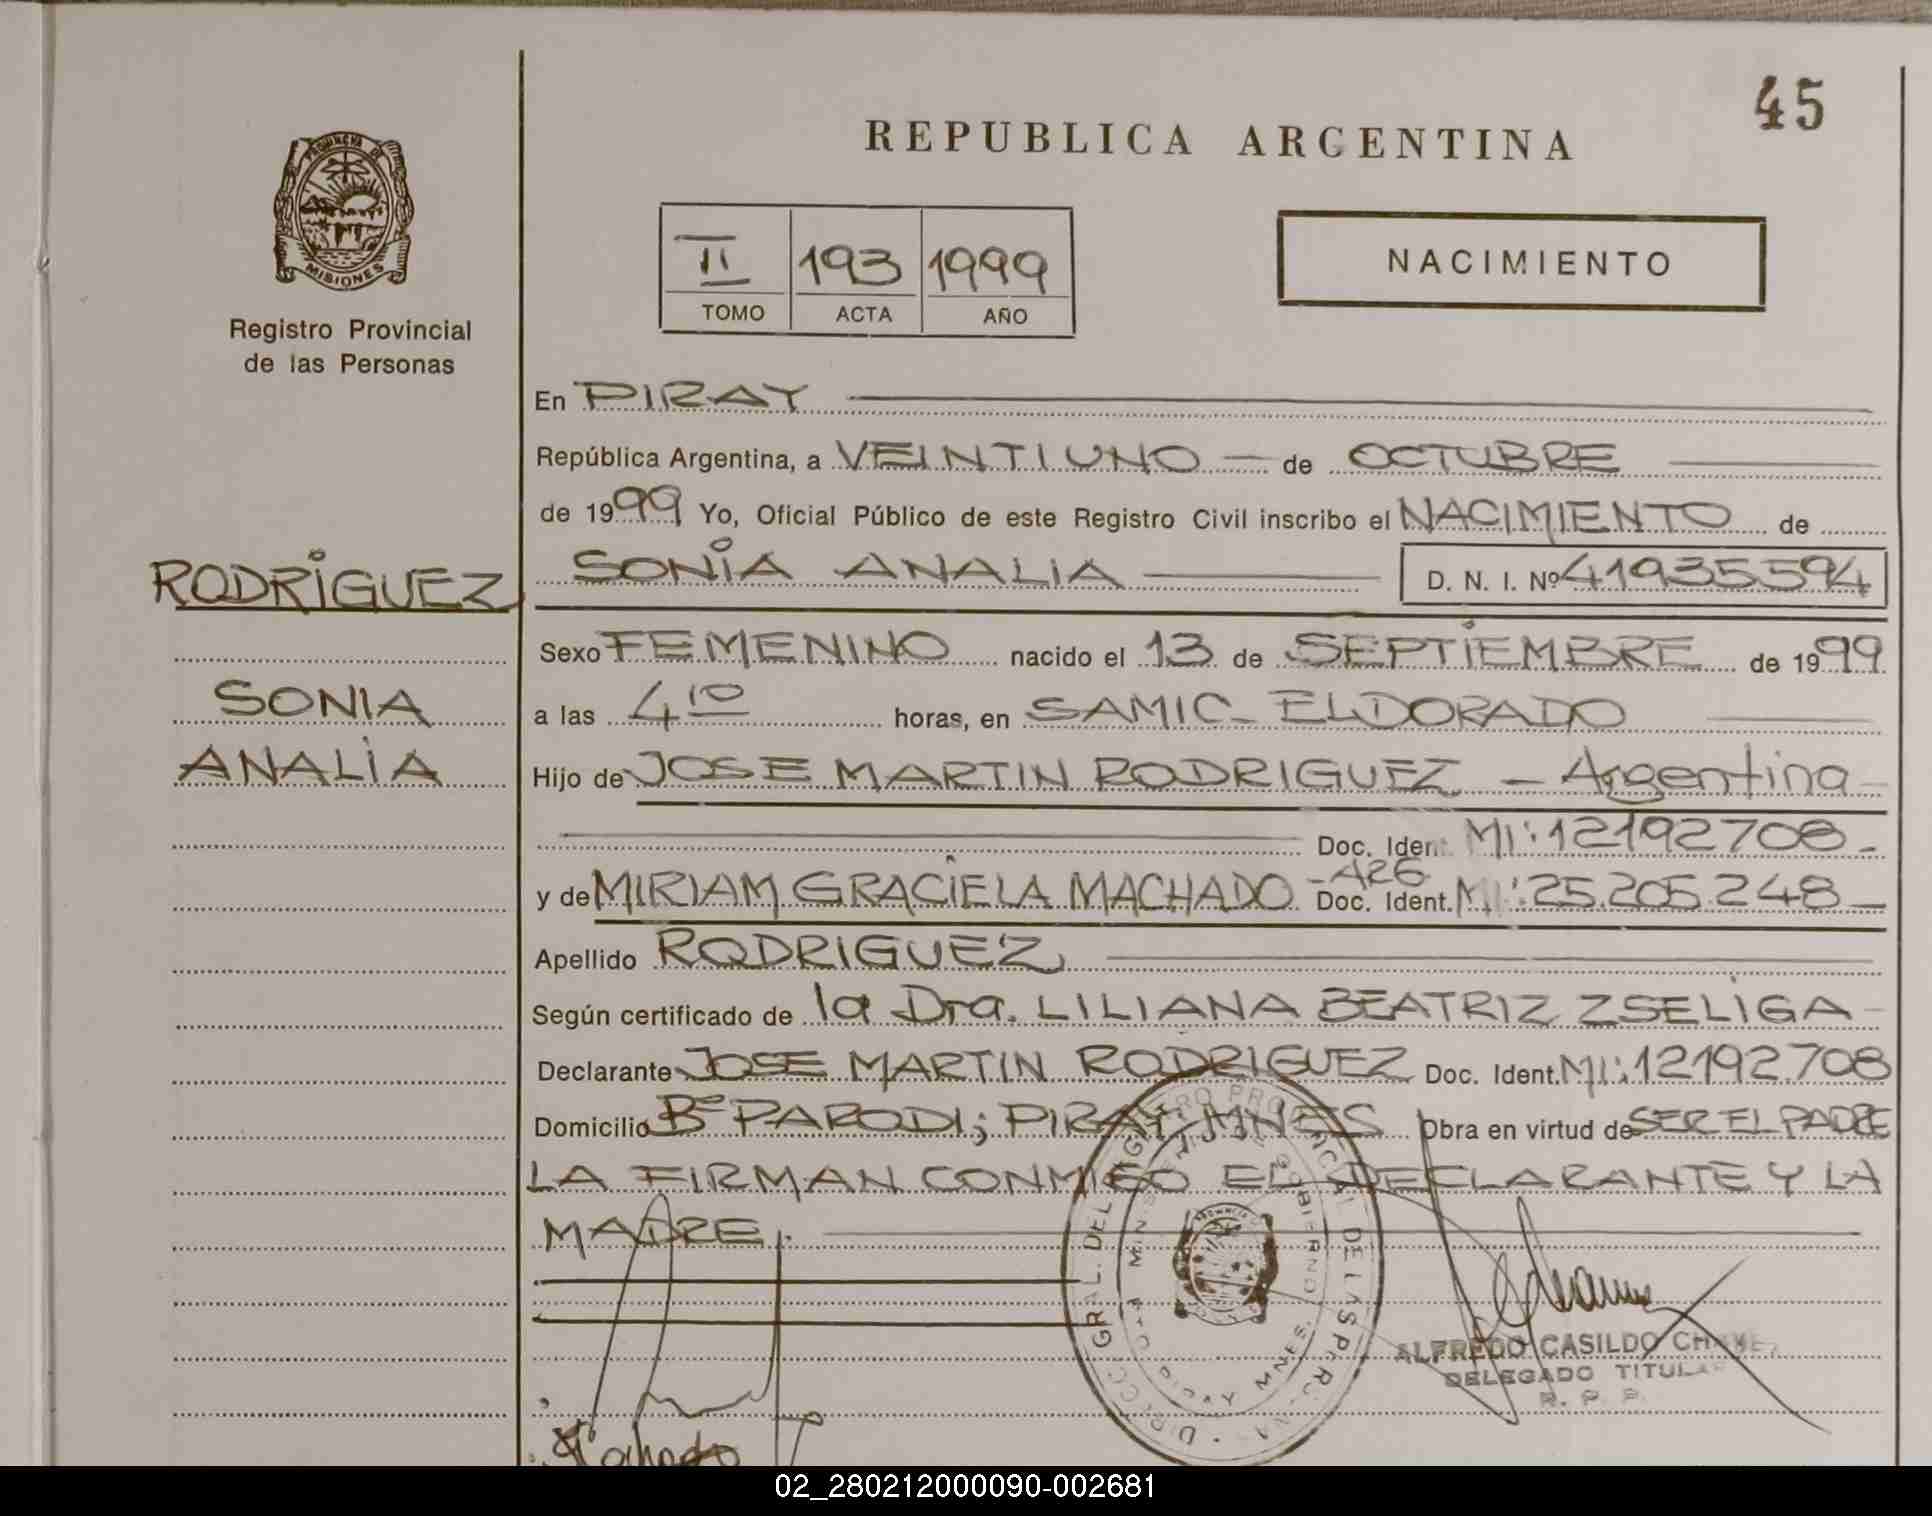 45
REPUBLICA ARGENTINA
PROVINCIA DE
MISIONES
Registro Provincial
de las Personas
II 193 1999
TOMO ACTA AÑO
NACIMIENTO
En PIRAY
República Argentina, a VEINTIUNO de OCTUBRE
de 1999 Yo, Oficial Público de este Registro Civil inscribo el NACIMIENTO de
RODRIGUEZ
SONIA ANALIA D. N. I. Nº 41935594
Sexo FEMENINO nacido el 13 de SEPTIEMBRE de 1999
SONIA
a las 4 10 horas, en SAMIC - ELDORADO
ANALIA
Hijo de JOSE MARTIN RODRIGUEZ - Argentina
Doc. Ident. MI: 12192708 -
y de MIRIAM GRACIELA MACHADO - ARG Doc. Ident. MI: 25.205.248
Apellido RODRIGUEZ
Según certificado de la Dra. LILIANA BEATRIZ ZSELIGA
Declarante JOSE MARTIN RODRIGUEZ Doc. Ident. MI: 12192.708
Domicilio Bº PARODI; PIRAY MNES Obra en virtud de SER EL PADRE
LA FIRMAN CONMIGO EL DECLARANTE Y LA
MADRE.
ALFREDO CASILDO
DELEGADO TITULAR
R. P. P.
02_280212000090-002681